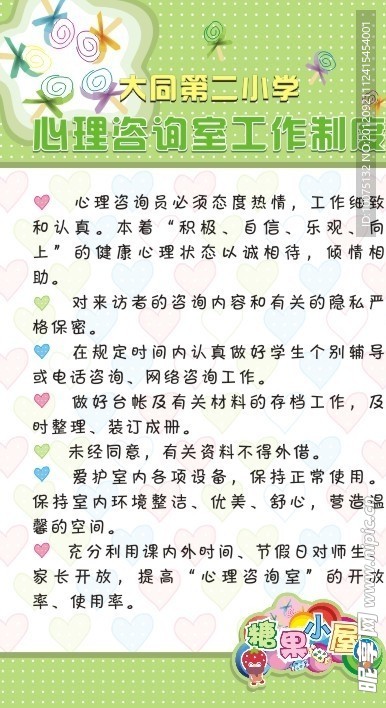 大同第二小学
心理咨询室工作制度
心理咨询员必须态度热情，工作细致
和认真。本着“积极、自信、乐观、向
上”的健康心理状态以诚相待，倾情相
助。
对来访者的咨询内容和有关的隐私严
格保密。
在规定时间内认真做好学生个别辅导
或电话咨询、网络咨询工作。
做好台帐及有关材料的存档工作，及
时整理、装订成册。
未经同意，有关资料不得外借。
爱护室内各项设备，保持正常使用。
保持室内环境整洁、优美、舒心，营造温
馨的空间。
充分利用课内外时间、节假日对师生
家长开放，提高“心理咨询室”的开放
率、使用率。
糖果小屋
昵享网 www.nipic.cn